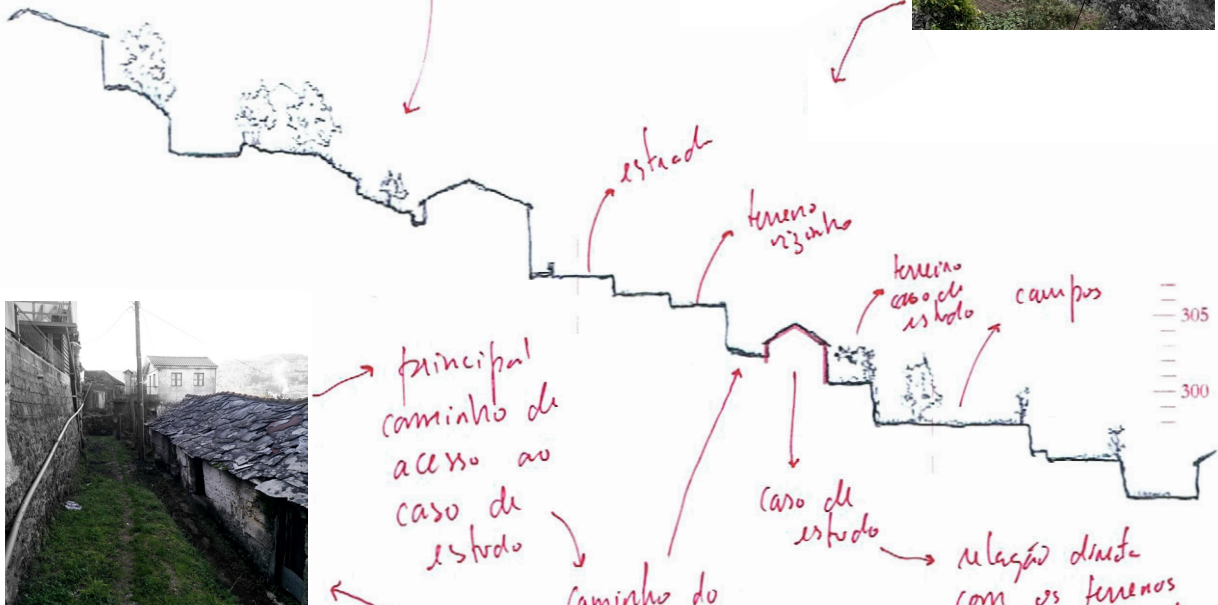 estrada
terreno
vizinho
terreiro
caso de
estudo
campos
305
300
principal
caminho de
acesso ao
caso de
estudo
caso de
estudo
caminho do
relação direta
com os terrenos